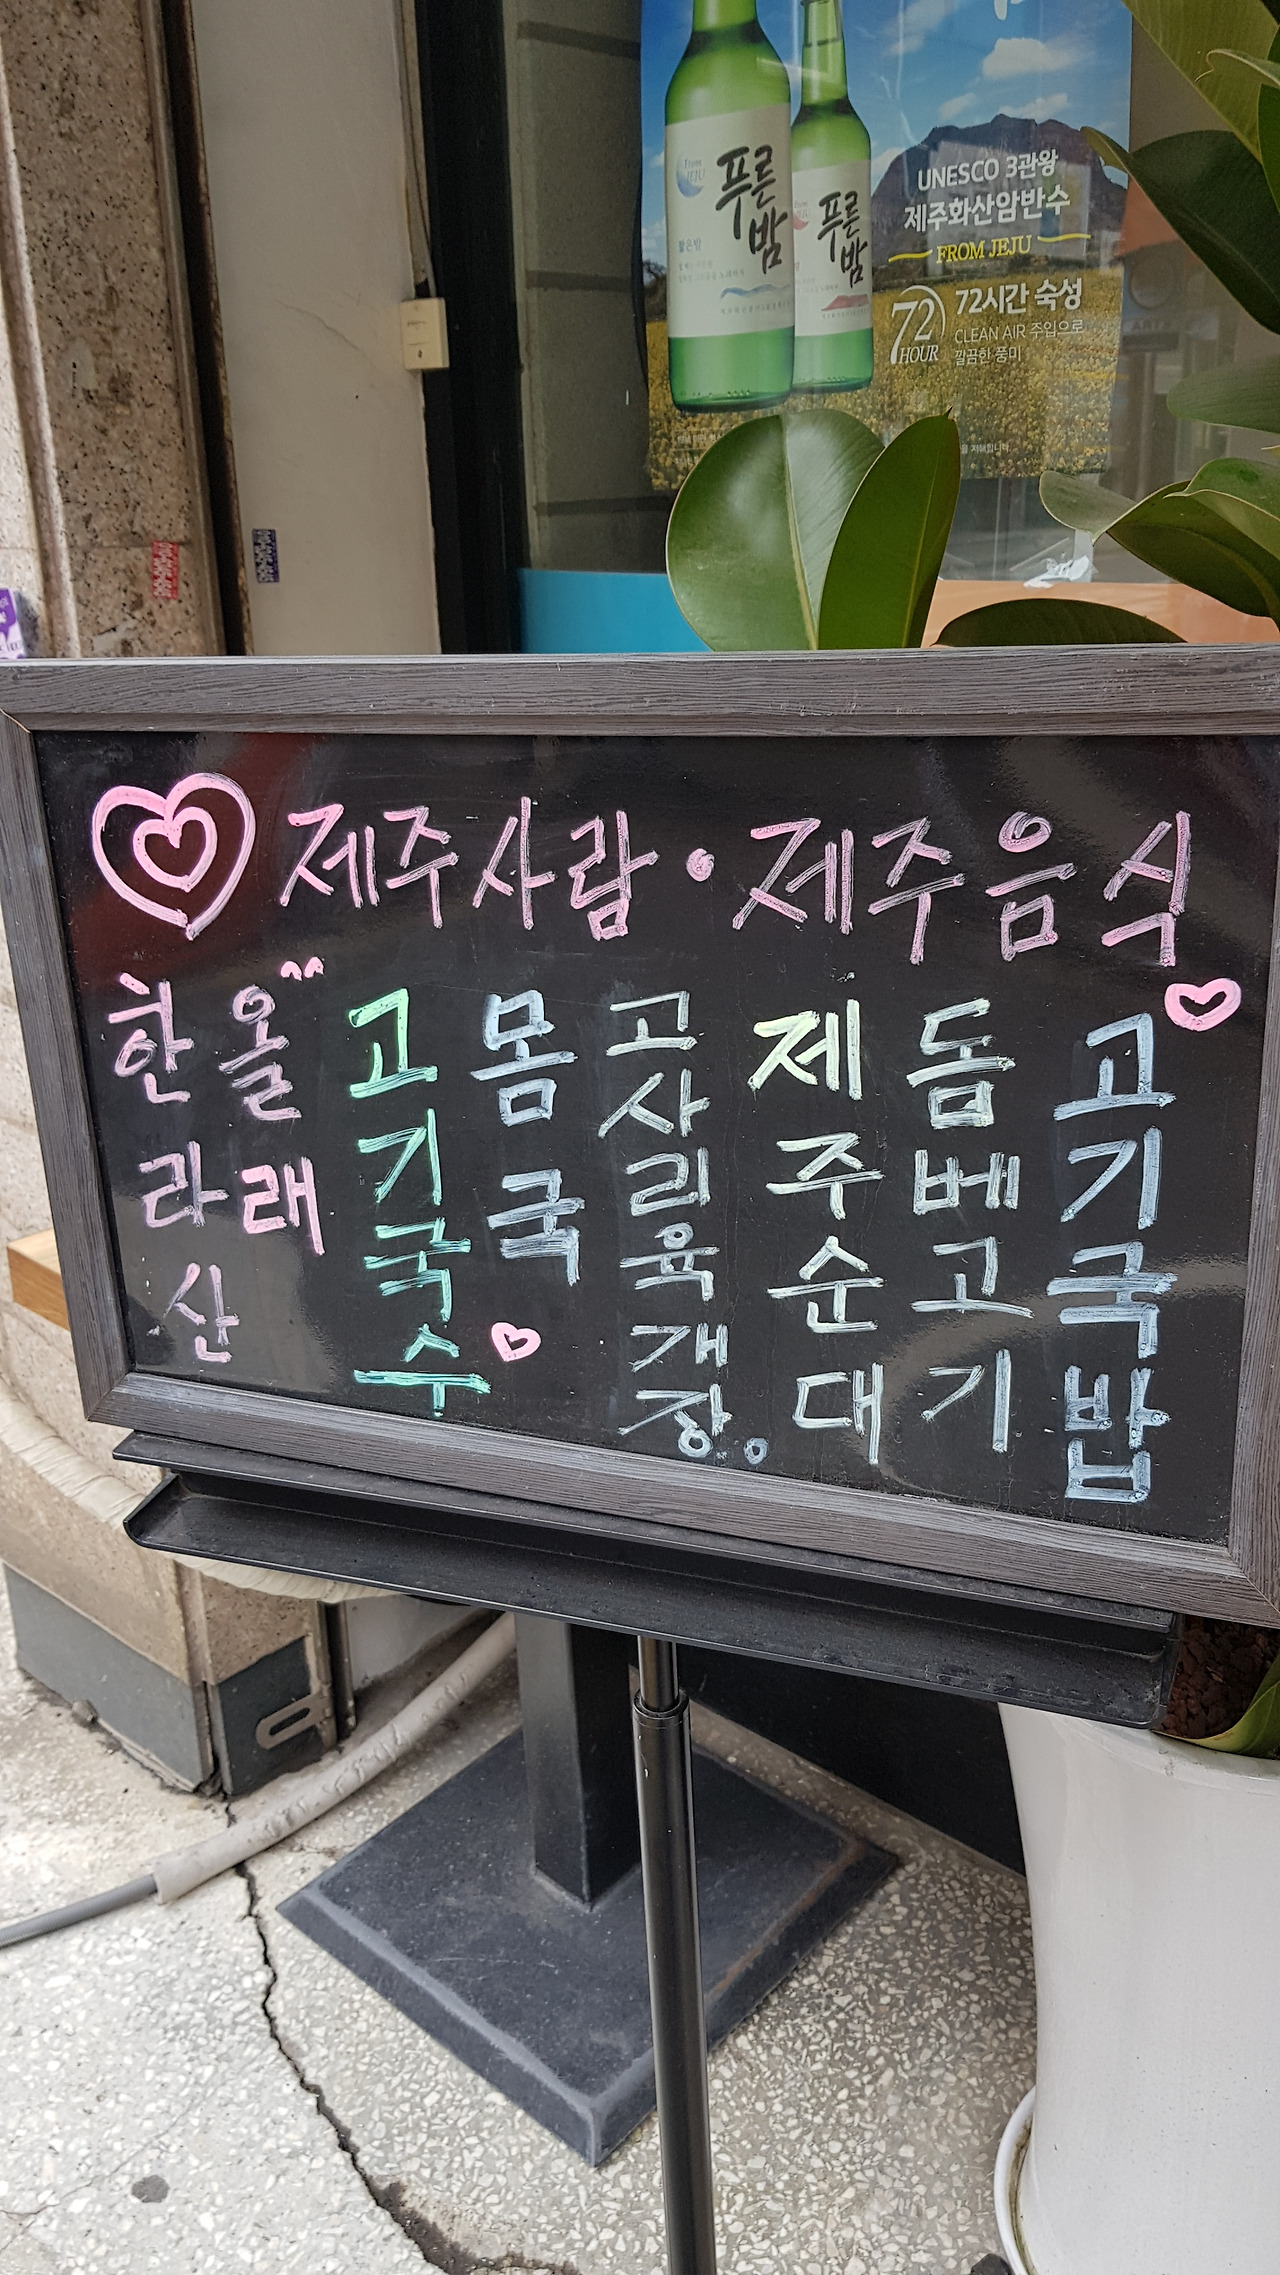 푸른
밤
푸른
밤
From
JEJU
짧은밤
UNESCO 3관왕
제주화산암반수
FROM JEJU
72
HOUR
72시간 숙성
CLEAN AIR 주입으로
깔끔한 풍미
제주사람 · 제주음식
한라산
올래
고기국수
몸국
고사리육개장。
제주순대
돔베고기
고기국밥